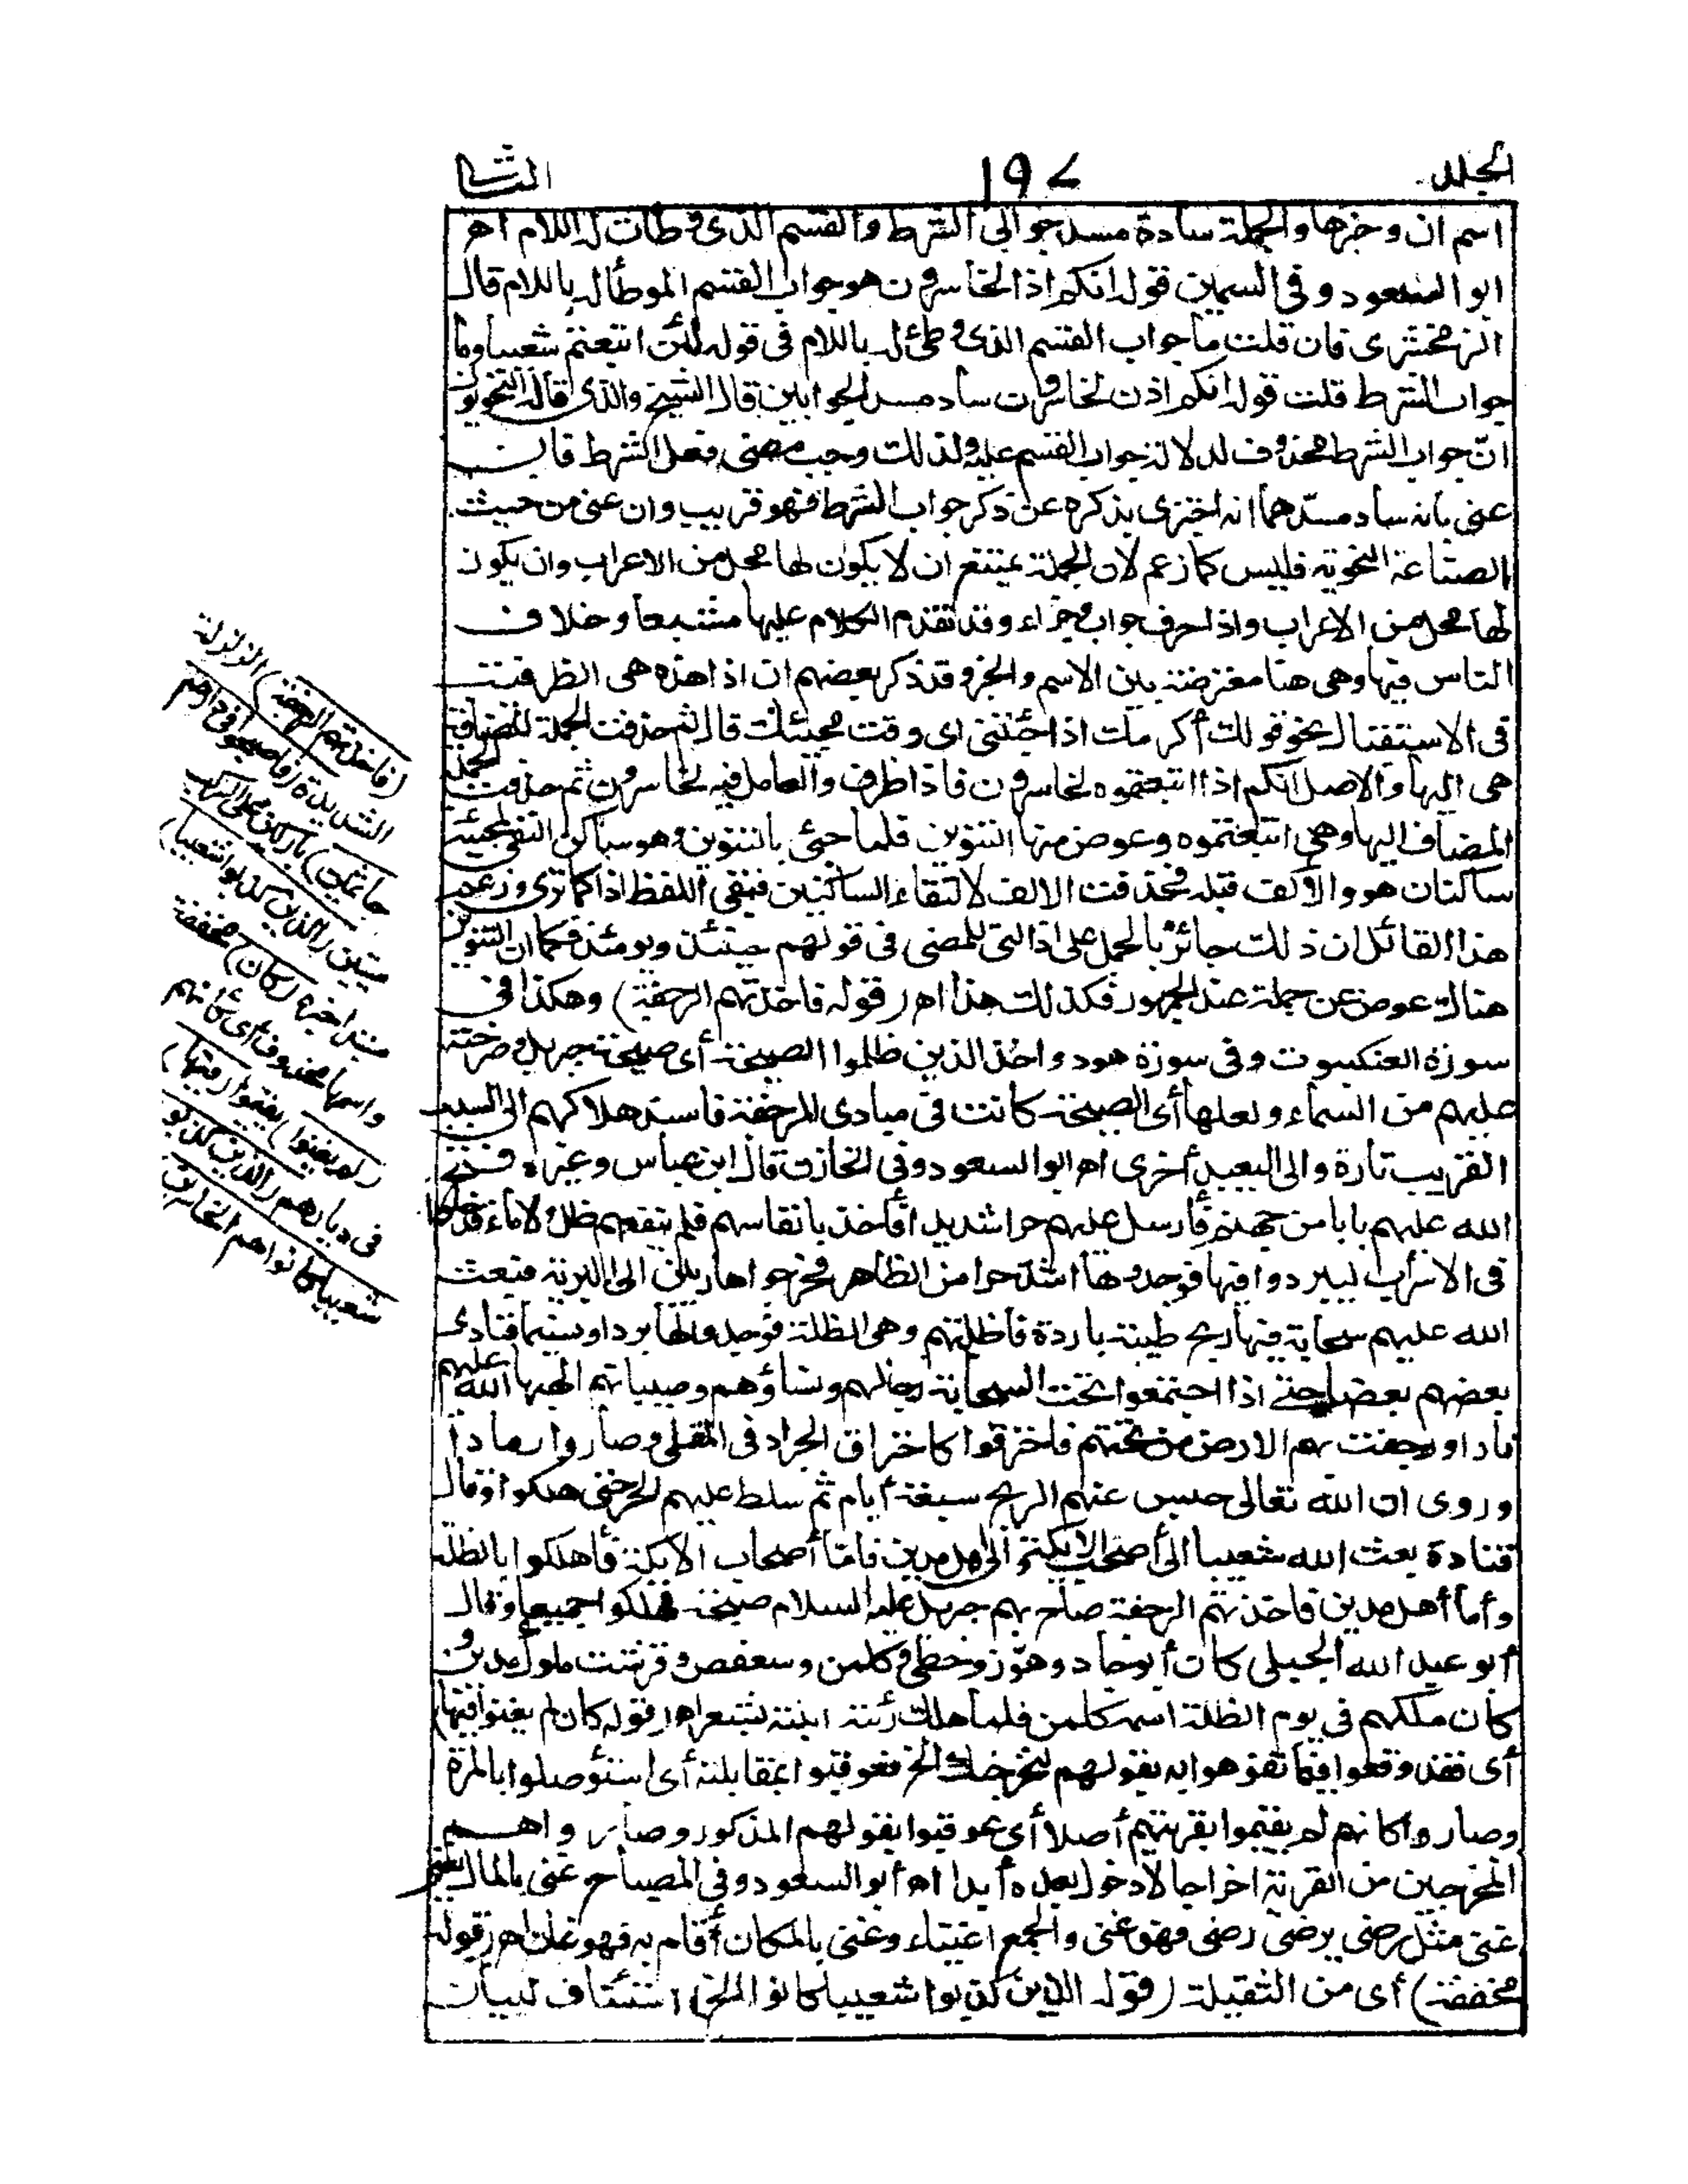 المجلد ١٩٧ الثانى
اسم ان وخبرها والجملة سادة مسد جوابى الشرط والقسم الذى وطأت له اللام اهـ
ابو السعود وفى السمين قوله انكم اذا لخاسرون هو جواب القسم الموطأ له باللام قال
الزمخشرى فان قلت ما جواب القسم الذى وطئ له باللام فى قوله لئن اتبعتم شعيبا وما
جواب الشرط قلت قوله انكم اذن لخاسرون ساد مسد الجوابين قال الشيخ والذى قاله النحويون
انّ جواب الشرط محذوف لدلالة جواب القسم عليه ولذلك وجب مضى فعل الشرط فان
عنى بانه ساد مسدّهما انه اجتزى بذكره عن ذكر جواب الشرط فهو قريب وان عنى من حيث
الصناعة النحوية فليس كما زعم لان الجملة يمتنع ان لا يكون لها محل من الاعراب وان يكون
لها محل من الاعراب واذا حرف جواب وجزاء وقد تقدم الكلام عليها مشبعا وخلاف
الناس فيها وهى هنا معترضة بين الاسم والخبر وقد ذكر بعضهم ان اذا هذه هى الظرفية
فى الاستقبال نحو قولك أكرمك اذا جئتنى اى وقت مجيئك قال ثم حذفت الجملة المضافة
هى اليها والاصل انكم اذا اتبعتموه لخاسرون فاذا ظرف والعامل فيه لخاسرون ثم حذفت الجملة
المضاف اليها وهى اتبعتموه وعوض منها التنوين فلما جئ بالتنوين وهو ساكن التقى لمجيئه
ساكنان هو والألف قبله فحذفت الالف لالتقاء الساكنين فبقى اللفظ اذا كما ترى وزعم
هذا القائل ان ذلك جائز بالحمل على اذ التى للمضى فى قولهم حينئذ ويومئذ فكما ان التنوين
هناك عوض عن جملة عند الجمهور فكذلك هذا اهـ (قوله فاخذتهم الرجفة) وهكذا فى
سورة العنكبوت وفى سورة هود واخذ الذين ظلموا الصيحة أى صيحة جبريل وصرخته
عليهم من السماء ولعلها أى الصيحة كانت فى مبادى الرجفة فاسند هلاكهم الى السبب
القريب تارة والى البعيد أخرى اهـ ابو السعود وفى الخازن قال ابن عباس وغيره فتح
الله عليهم بابا من جهنم فأرسل عليهم حرا شديدا فأخذ بانفاسهم فلم ينفعهم ظل ولا ماء فدخلوا
فى الاسراب ليبردوا فيها فوجدوها اشدّ حرا من الظاهر فخرجوا هاربين الى البرية فبعث
الله عليهم سحابة فيها ريح طيبة باردة فأظلتهم وهى الظلة فوجدوا لها بردا ونسيما فنادى
بعضهم بعضا حتى اذا اجتمعوا تحت السحابة رجالهم ونساؤهم وصبيانهم ألهبها الله عليهم
نارا ورجفت بهم الارض من تحتهم فاحترقوا كاحتراق الجراد فى المقلى وصاروا رمادا
وروى ان الله تعالى حبس عنهم الريح سبعة أيام ثم سلط عليهم الحر حتى هلكوا وقال
قتادة بعث الله شعيبا الى أصحاب الايكة والى اهل مدين فامّا أصحاب الايكة فأهلكوا بالظلة
وأما أهل مدين فاخذتهم الرجفة صاح بهم جبريل عليه السلام صيحة فهلكوا جميعا وقال
أبو عبد الله البجلى كان أبو جاد وهوّز وحطى وكلمن وسعفص وقرشت ملوك مدين و
كان ملكهم فى يوم الظلة اسمه كلمن فلما هلك رثته ابنته بشعر اهـ (قوله كان لم يغنوا فيها)
أى فقد وقعوا فيما تفوهوا به بقولهم لنخرجنك الخ فعوقبوا بمقابلته أى استؤصلوا بالمرة
وصاروا كانهم لم يقيموا بقريتهم أصلا أى عوقبوا بقولهم المذكور وصاروا هم
المخرجين من القرية اخراجا لا دخول بعده أبدا اهـ أبو السعود وفى المصباح غنى بالمال يغنى
غنى مثل رضى يرضى رضى فهو غنى والجمع اغنياء وغنى بالمكان أقام به فهو غان اهـ (قوله
مخففة) أى من الثقيلة (قوله الذين كذبوا شعيبا كانوا الخ) استئناف لبيان
(فاخذتهم الرجفة) الزلزلة
الشديدة (فاصبحوا فى دارهم
جاثمين) باركين على الركب
ميتين (الذين كذبوا شعيبا)
مبتدا خبره (كان) مخففة
واسمها محذوف أى كأنهم
(لم يغنوا) يقيموا (فيها)
فى ديارهم (الذين كذبوا
شعيبا كانوا هم الخاسرين